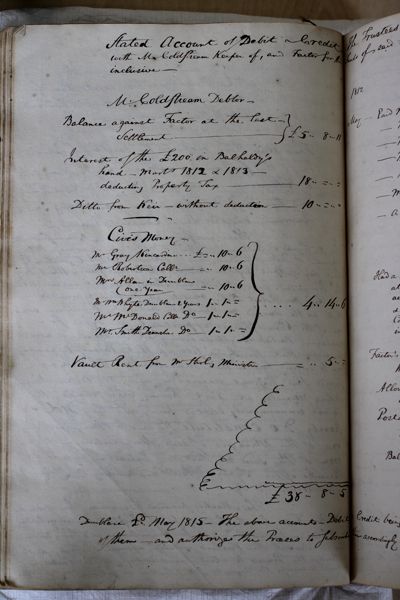 Stated Account of Debit & Credit
with Mr Coldstream Keeper of, and Factor for
inclusive —
Mr Coldstream Debtor —
Balance against Factor at the last
Settlement — £5.. 8.. 11
Interest of the £200 on Balhaldy's
hand — Martss 1812 & 1813 —
deducting Property Tax — 18.. = .. =
Ditto from Keir — without deduction — 10.. = .. =
Cives Money —
Mr Gray Kincardine .. £= .. 10.. 6
Mr Robertson Callr .. 10.. 6
Mrs Allan in Dunblane
(one year — .. 10.. 6
Mr Wm Whyte Dunblane 2 years 1.. 1.. =
Mr McDonald Do 1.. 1.. =
Mr Smith Do — 1.. 1.. =
4.. 14.. 6
Vault Rent for Mr Minister — = .. 5.. =
£38.. 8.. 5
Dunblane May 1815 — The above accounts — Debit
of them — and authorizes the Preses to
The Trustees
of said
1812
May — Paid
Had a
Factor's
Allow
Post
Bal
Credit being
accordingly